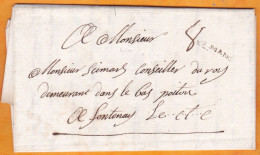 A Monsieur 8
Monsieur Seimard conseiller du roy
demeurant dans le bas poitou
A fontenay Le-cte